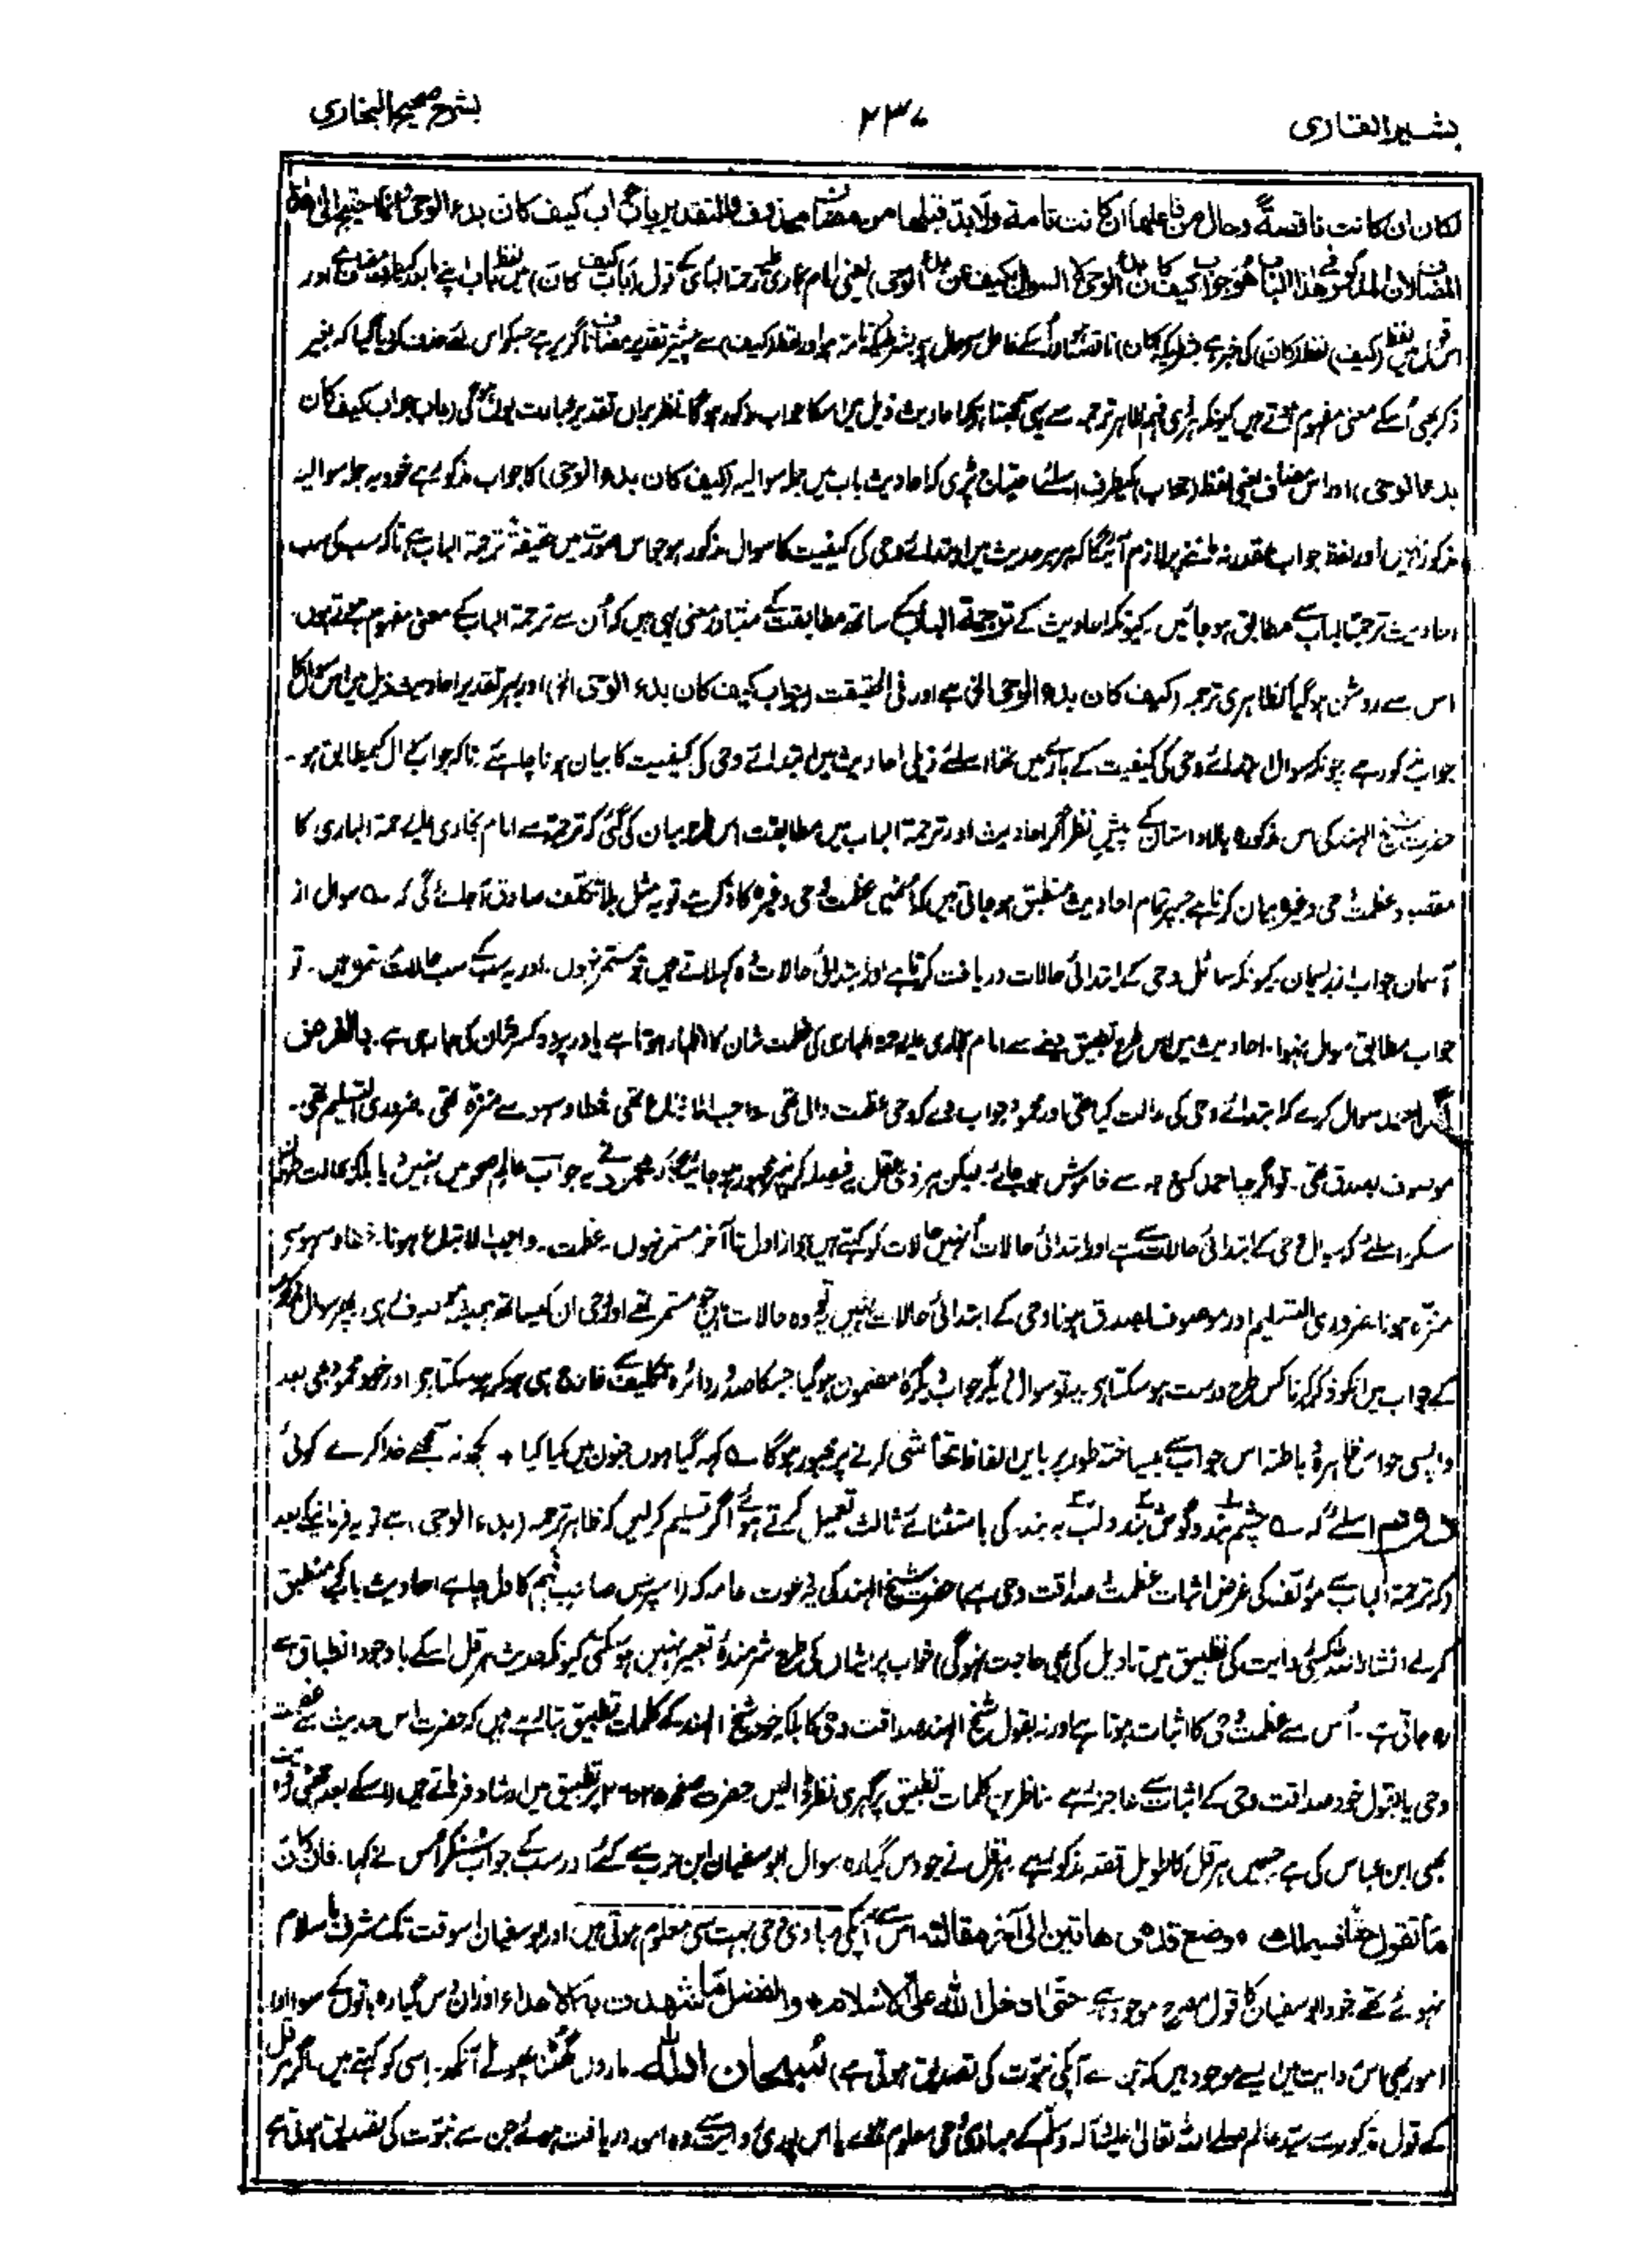 بشیر القاری
۲۳۷
بشرح صحیح البخاری
لکان ان کانت ناقصةً وحال من فاعلها ان کانت تامة ولابد قبلها من مضاف محذوف والتقدیر باب جواب کیف کان بدء الوحی
المضاف لان المذکور فی هذا الباب هو جواب کیف کان بدء الوحی لا السوال بکیف عن بدء الوحی) یعنی امام بخاری علیہ رحمۃ الباری کے قول (باب کیف کان) میں لفظ باب اپنے مابعد کیطرف مضاف ہے اور
اس قول میں لفظ (کیف) لفظ (کان) کی خبر ہے بشرطیکہ (کان) ناقصہ ہو اور اسکے فاعل سے حال ہے بشرطیکہ تامہ ہو اور لفظ (کیف) سے پیشتر تقدیر مضاف ناگزیر ہے جسکو اس لئے حذف کر دیا گیا کہ بغیر
ذکر بھی اُسکے معنی مفہوم ہوتے ہیں کیونکہ ہر ذی فہم ظاہر ترجمہ سے یہی سمجھتا ہے کہ احادیث ذیل میں اسکا جواب مذکور ہوگا نظر براں تقدیر عبارت یوں ہوگی (باب جواب کیف کان
بدء الوحی) اور اس مضاف یعنی لفظ (جواب) کیطرف اسلئے احتیاج پڑی کہ احادیث باب میں جملہ سوالیہ (کیف کان بدء الوحی) کا جواب مذکور ہے خود یہ جملہ سوالیہ
مذکور نہیں اور لفظ جواب مقدر نہ ماننے پر لازم آئیگا کہ ہر ہر حدیث میں ابتدائے وحی کی کیفیت کا سوال مذکور ہو جو اس صورت میں حقیقۃً ترجمۃ الباب ہے تاکہ سب کی سب
احادیث ترجمۃ الباب سے مطابق ہو جائیں۔ کیونکہ احادیث کے ترجمة الباب کے ساتھ مطابقت کے متبادر معنی یہی ہیں کہ اُن سے ترجمۃ الباب کے معنی مفہوم ہوتے ہوں۔
اس سے روشن ہو گیا کہ ظاہری ترجمہ (کیف کان بدء الوحی الخ) ہے اور فی الحقیقت (جواب کیف کان بدء الوحی الخ) اور بہر تقدیر احادیث ذیل میں اس سوال کا
جواب مذکور ہے چونکہ سوال ابتدائے وحی کی کیفیت کے بارے میں تھا اسلئے ذیلی احادیث میں ابتدائے وحی کی کیفیت کا بیان ہونا چاہئے تاکہ جواب سوال کیمطابق ہو۔
حضرت شیخ الہند کی اس مذکورہ بالا داستان کے پیش نظر اگر احادیث اور ترجمۃ الباب میں مطابقت اس طرح بیان کی گئی کہ ترجمہ سے امام بخاری علیہ رحمۃ الباری کا
مقصود عظمت وحی وغیرہ بیان کرنا ہے جسپر تمام احادیث منطبق ہو جاتی ہیں کہ اُنمیں عظمت وحی وغیرہ کا ذکر ہے تو یہ مثل بلا تکلف صادق آجائے گی کہ ؎ سوال از
آسمان جواب از ریسمان۔ کیونکہ سائل وحی کے ابتدائی حالات دریافت کرتا ہے اور ابتدائی حالات وہ کہلاتے ہیں جو مستمر نہوں۔ اور یہ سب کے سب حالات مستمرہ ہیں۔ تو
جواب مطابق سوال نہوا۔ احادیث میں اس طرح تطبیق دینے سے امام بخاری علیہ رحمۃ الباری کی عظمت شان کا اظہار ہوتا ہے یا در پردہ کسر شان کی جا رہی ہے۔ بالفرض
اگر احمد سوال کرے کہ ابتدائے وحی کی حالت کیا تھی اور محمود جواب دے کہ وحی عظمت والی تھی۔ واجب الاتباع تھی خطا و سہو سے منزہ تھی۔ ضروری التسلیم تھی۔
موصوف بصدق تھی۔ تو اگرچہ احمد کسی وجہ سے خاموش ہو جائے۔ لیکن ہر ذی عقل یہ فیصلہ کرنے پر مجبور ہو جائیگا کہ محمود نے یہ جواب عالم صحو میں نہیں دیا بلکہ بحالت
سکر۔ اسلئے کہ سوال وحی کے ابتدائی حالات سے ہے اور ابتدائی حالات اُنہیں حالات کو کہتے ہیں جو از اول تا آخر مستمر نہوں۔ عظمت۔ واجب الاتباع ہونا۔ خطا و سہو سے
منزہ ہونا ضروری التسلیم اور موصوف بصدق ہونا وحی کے ابتدائی حالات نہیں یہ تو وہ حالات ہیں جو مستمر تھے اور وحی ان کیساتھ ہمیشہ موصوف رہی پھر سوال مذکور
کے جواب میں انکو ذکر کرنا کس طرح درست ہو سکتا ہے۔ یہ تو سوال دیگر جواب دیگر کا مضمون ہو گیا جسکا صدور دائرہ تکلیف سے خارج ہی ہو کر ہو سکتا ہے اور خود محمود بھی بعد
واپسی حواس ظاہرہ باطنہ اس جواب سے بیساختہ طور پر بایں الفاظ تحاشی کرنے پر مجبور ہوگا ؎ کہہ گیا ہوں جنون میں کیا کیا ٭ کچھ نہ سمجھے خدا کرے کوئی
دوم اسلئے کہ ؎ چشم بند و گوش بند و لب بہ بند۔ کی باستثنائے ثالث تعمیل کرتے ہوئے اگر تسلیم کر لیں کہ ظاہر ترجمہ (بدء الوحی) ہے تو یہ فرمانیکے بعد
(کہ ترجمۃ الباب سے مؤلف کی غرض اثبات عظمت و صداقت وحی ہے) حضرت شیخ الہند کی یہ دعوت عامہ کہ (اسپر جس صاحب فہم کا دل چاہے احادیث باب کو منطبق
کرلے انشاء اللہ کسی روایت کی تطبیق میں تاویل کی بھی حاجت نہوگی) خواب پریشاں کی طرح شرمندۂ تعبیر نہیں ہو سکتی کیونکہ حدیث ہرقل اسکے باوجود انطباق سے
رہ جاتی ہے۔ اُس سے عظمت وحی کا اثبات ہوتا ہے اور نہ بقول شیخ الہند صداقت وحی کا بلکہ خود شیخ الہند کے کلمات تطبیق بتا رہے ہیں کہ حضرت اس حدیث سے عظمت
وحی یا بقول خود صداقت وحی کے اثبات سے عاجز رہے۔ ناظرین کلمات تطبیق پر گہری نظر ڈالیں حضرت صفحہ پر تطبیق میں ارشاد فرماتے ہیں (اسکے بعد چھٹی روایت
بھی ابن عباس کی ہے جسمیں ہرقل کا طویل قصہ مذکور ہے۔ ہرقل نے جو دس گیارہ سوال ابوسفیان ابن حرب سے کئے اور سب کے جواب سُنکر اُس نے کہا۔ فان کان
ما تقول حقا فسیملك موضع قدمی هاتین الی آخر مقالته اس سے آپکی مبادی وحی بہت سی معلوم ہوتی ہیں اور ابوسفیان اسوقت تک مشرف باسلام
نہوئے تھے خود ابوسفیان کا قول مصرح موجود ہے۔ حتی ادخل الله علی الاسلام ٭ والفضل ما شهدت به الاعداء اور ان دس گیارہ باتوں کے سوا اور
امور بھی اس روایت میں ایسے موجود ہیں کہ جن سے آپکی نبوت کی تصدیق ہوتی ہے) سبحان الله۔ ماروں گھٹنا پھوٹے آنکھ۔ اسی کو کہتے ہیں۔ اگر ہرقل
کے قول مذکور سے سید عالم صلے اللہ تعالیٰ علیہ وآلہ وسلم کے مبادی وحی معلوم ہوئے یا اس پوری روایت سے وہ امور دریافت ہوئے جن سے نبوت کی تصدیق ہوتی ہے